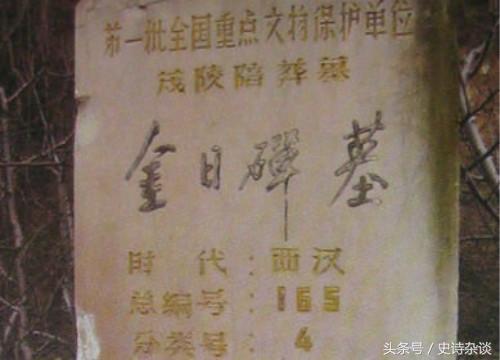 第一批全国重点文物保护单位
茂陵陪葬墓
金日磾墓
时 代：西汉
总编号：165
分类号：4
头条号 / 史诗杂谈